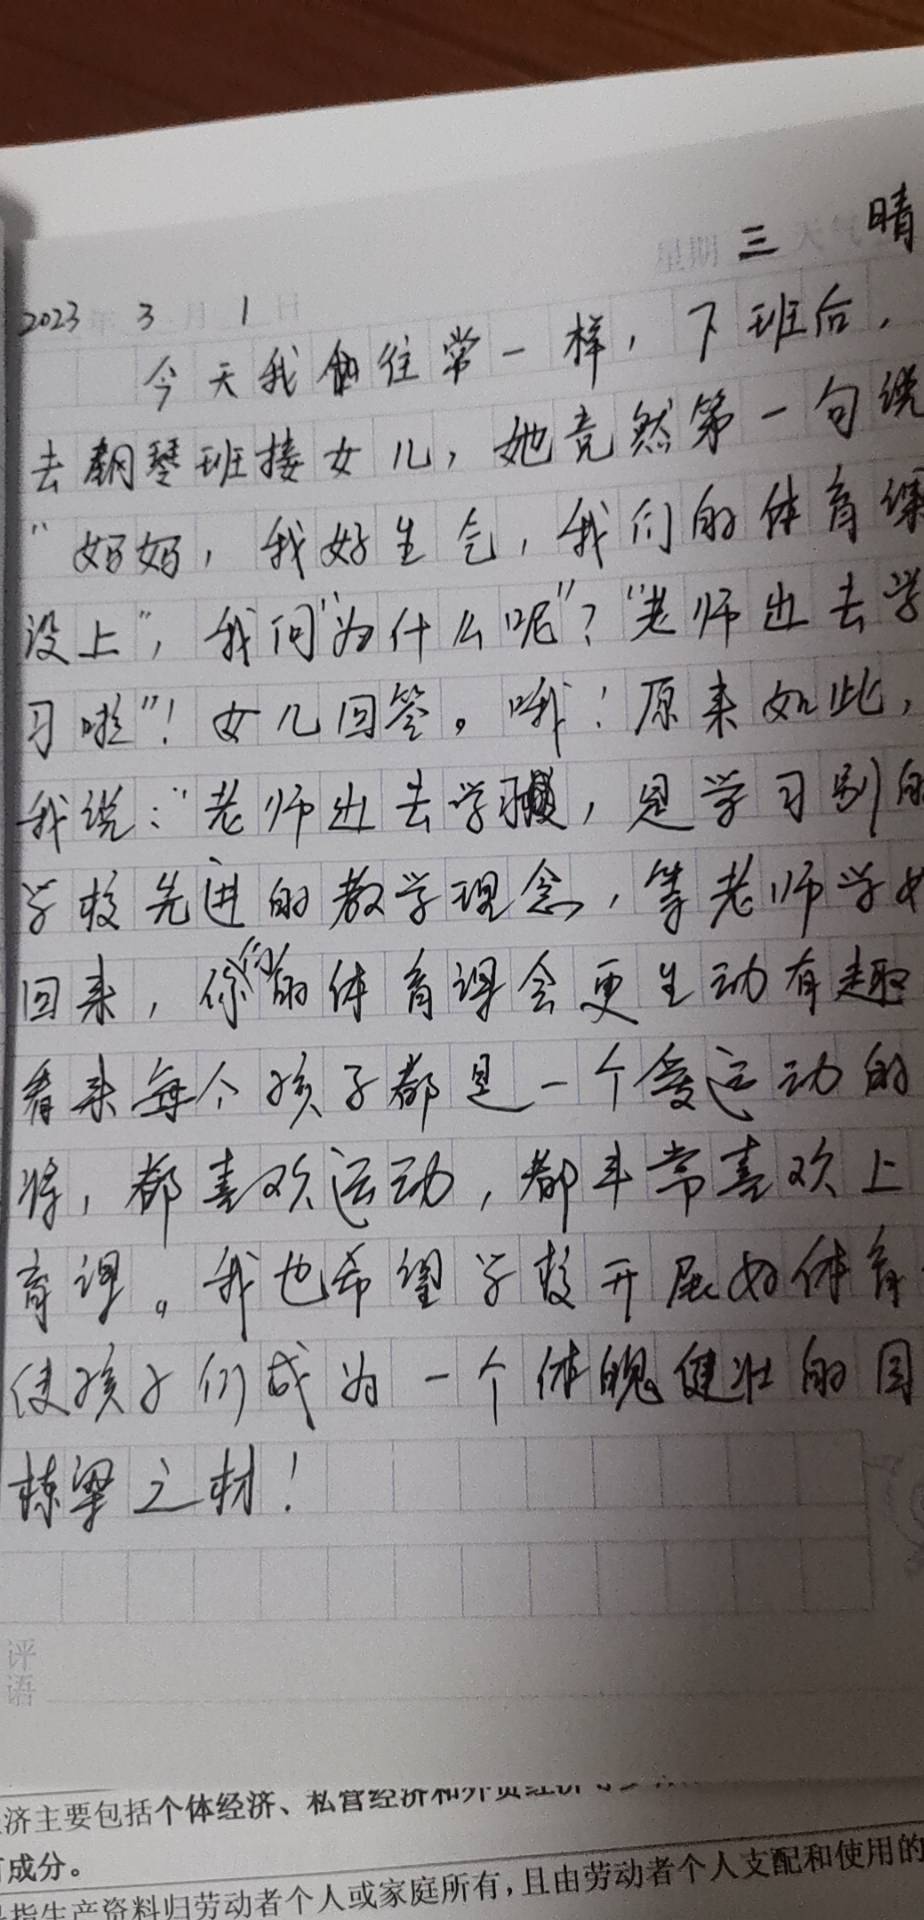 星期 三 天气 晴
2023 年 3 月 1 日
今天我如往常一样，下班后，
去钢琴班接女儿，她竟然第一句说
“妈妈，我好生气，我们的体育课
没上”，我问“为什么呢”？“老师出去学
习啦”！女儿回答。哦！原来如此，
我说：“老师出去学习，是学习别的
学校先进的教学理念，等老师学成
回来，你们的体育课会更生动有趣
看来每个孩子都是一个爱运动的
将，都喜欢运动，都非常喜欢上
育课。我也希望学校开展好体育
使孩子们成为一个体魄健壮的国
栋梁之材！
评
语
济主要包括个体经济、私营经济和外资经济
成分。
指生产资料归劳动者个人或家庭所有，且由劳动者个人支配和使用的